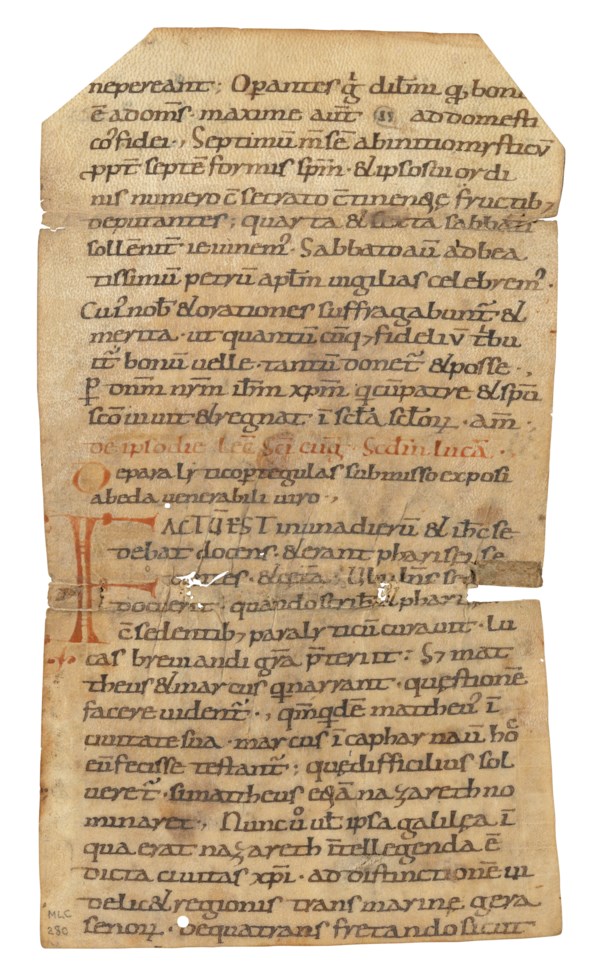 nepereant; Operantes g̊ dil̅mi qđ bonū
ē adom̅s · maxime aut̅ ad domesti
cos fidei ·, Septimū m̅sē ab initio mysticū
ppt̅ septē formis sp̅m · & ipso suo ordi
nis numero c̅secrato c̅tinen&ę fructib;
deputantes; quarta & sexta sabbati
soll̅enit̅ ieiunem᷒ · Sabbato aū ad bea
tissimū petrū apl̅m uigilias celebrem᷒ ·
Cui᷒ nob̅ & orationes suffragabunt᷒ · &
merita · ut quantū cūq; fideliū t̅bu
it᷒ bonū uelle · tantū donet᷒ & posse ·,
p dn̅m nr̅m ih̅m xp̅m q̅ cū patre & sp̅u
sc̅o uiuit & regnat i̅ scl̅a scl̅oꝝ · am̅ ·
de ipso die Lec̅ Sc̅i euḡ · Scdm̅ Lucā ·
De paralytico p tegulas submisso exposi
a beda uenerabili uiro ·,
FACTŪ EST in una dierū & ih̅c se
debat docens · & erant pharisęi se
dentes · & cętera; Ubi dn̅s sed
docuerit · quando scribis & phari
c̅sedentib; paralyticū curauit · Lu
cas breuiandi gr̅a p̅teriit: S; mat
theus & marcus q̅ narrant · quęstionē
facere uident᷒ ·, qm̅ qdē mattheu᷒ i̅
ciuitate sua · marcus i̅ capharnaū hoc
eū fecisse testant᷒; quę difficilius sol
ueret᷒ · si mattheus etiā nazareth no
minaret ·, Nunc ů ul̅t ipsa galilęa i̅
qua erat nazareth i̅tellegenda ē
dicta ciuitas xp̅i · ad distinctionē ui
delic& regionis transmarinę gera
senoꝝ · De qua trans fretando sicut
MLC
280